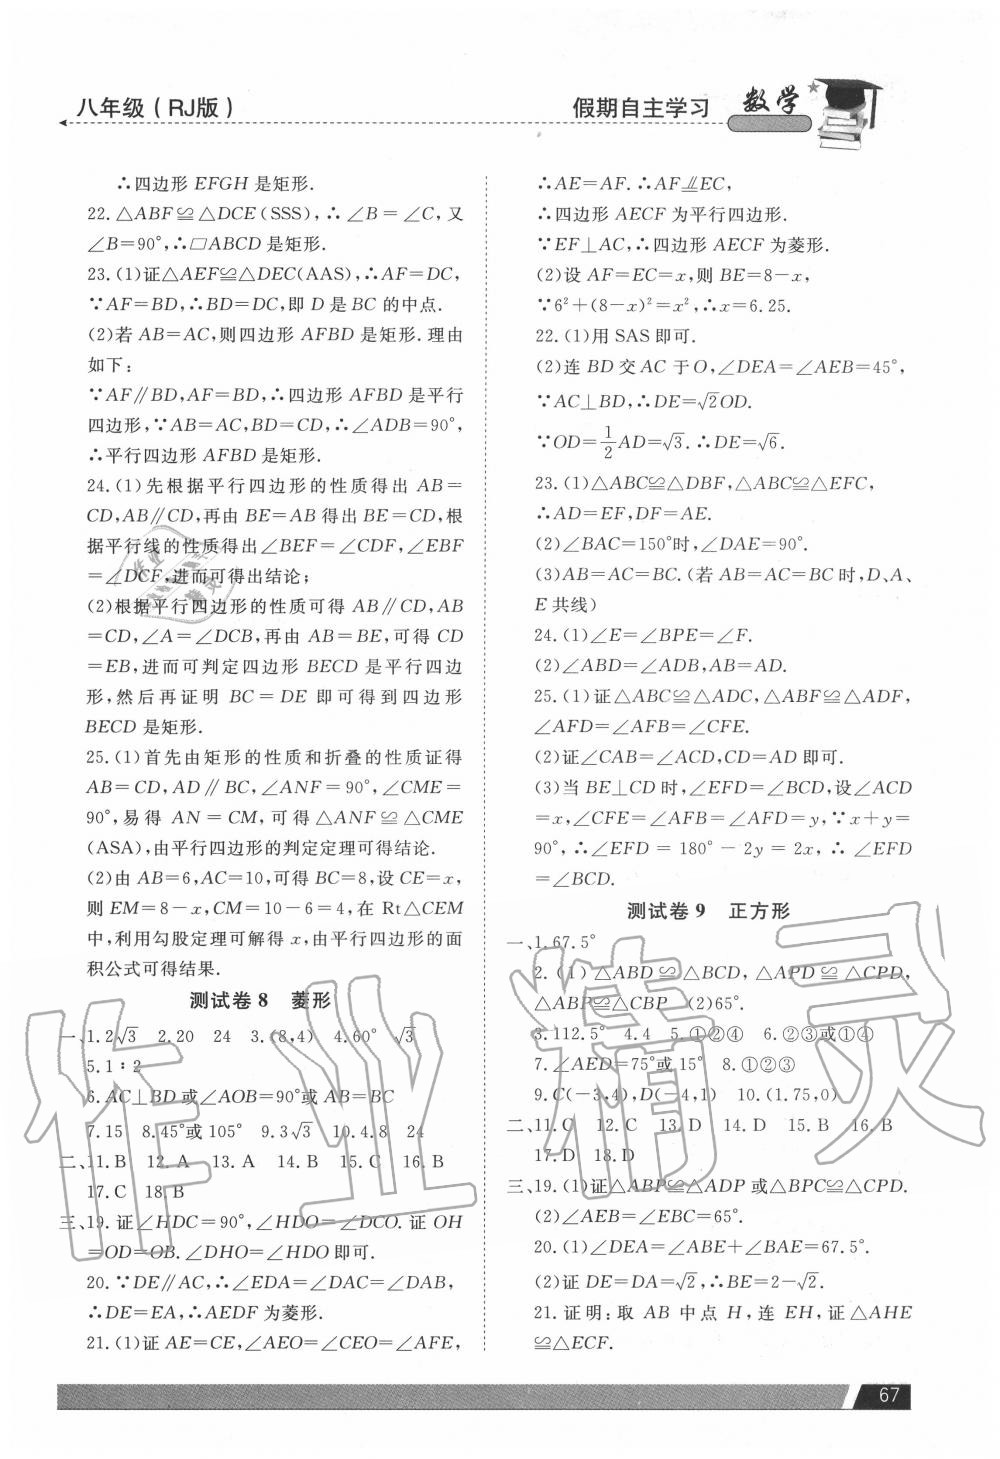 八年级(RJ版)
假期自主学习 数学
∴四边形 EFGH 是矩形.
22.△ABF≌△DCE(SSS),∴∠B=∠C,又
∠B=90°,∴▱ABCD 是矩形.
23.(1)证△AEF≌△DEC(AAS),∴AF=DC,
∵AF=BD,∴BD=DC,即 D 是 BC 的中点.
(2)若 AB=AC,则四边形 AFBD 是矩形.理由
如下:
∵AF∥BD,AF=BD,∴四边形 AFBD 是平行
四边形,∵AB=AC,BD=CD,∴∠ADB=90°,
∴平行四边形 AFBD 是矩形.
24.(1)先根据平行四边形的性质得出 AB=
CD,AB∥CD,再由 BE=AB 得出 BE=CD,根
据平行线的性质得出∠BEF=∠CDF,∠EBF
=∠DCF,进而可得出结论;
(2)根据平行四边形的性质可得 AB∥CD,AB
=CD,∠A=∠DCB,再由 AB=BE,可得 CD
=EB,进而可判定四边形 BECD 是平行四边
形,然后再证明 BC=DE 即可得到四边形
BECD 是矩形.
25.(1)首先由矩形的性质和折叠的性质证得
AB=CD,AD∥BC,∠ANF=90°,∠CME=
90°,易得 AN=CM,可得△ANF≌△CME
(ASA),由平行四边形的判定定理可得结论.
(2)由 AB=6,AC=10,可得 BC=8,设 CE=x,
则 EM=8-x,CM=10-6=4,在 Rt△CEM
中,利用勾股定理可解得 x,由平行四边形的面
积公式可得结果.
测试卷8 菱形
一、1.2√3 2.20 24 3.(8,4) 4.60° √3
5.1∶2
6.AC⊥BD 或∠AOB=90°或 AB=BC
7.15 8.45°或 105° 9.3√3 10.4.8 24
二、11.B 12.A 13.A 14.B 15.C 16.B
17.C 18.B
三、19.证∠HDC=90°,∠HDO=∠DCO.证 OH
=OD=OB.∠DHO=∠HDO即可.
20.∵DE∥AC,∴∠EDA=∠DAC=∠DAB,
∴DE=EA,∴AEDF 为菱形.
21.(1)证 AE=CE,∠AEO=∠CEO=∠AFE,
∴AE=AF.∴AF⫫EC,
∴四边形 AECF 为平行四边形.
∵EF⊥AC,∴四边形 AECF 为菱形.
(2)设 AF=EC=x,则 BE=8-x,
∵6²+(8-x)²=x²,∴x=6.25.
22.(1)用 SAS 即可.
(2)连 BD 交 AC 于 O,∠DEA=∠AEB=45°,
∵AC⊥BD,∴DE=√2OD.
∵OD=1/2AD=√3.∴DE=√6.
23.(1)△ABC≌△DBF,△ABC≌△EFC,
∴AD=EF,DF=AE.
(2)∠BAC=150°时,∠DAE=90°.
(3)AB=AC=BC.(若 AB=AC=BC 时,D、A、
E 共线)
24.(1)∠E=∠BPE=∠F.
(2)∠ABD=∠ADB,AB=AD.
25.(1)证△ABC≌△ADC,△ABF≌△ADF,
∠AFD=∠AFB=∠CFE.
(2)证∠CAB=∠ACD,CD=AD 即可.
(3)当 BE⊥CD 时,∠EFD=∠BCD,设∠ACD
=x,∠CFE=∠AFB=∠AFD=y,∵x+y=
90°,∴∠EFD=180°-2y=2x,∴∠EFD
=∠BCD.
测试卷9 正方形
一、1.67.5°
2.(1)△ABD≌△BCD,△APD≌△CPD,
△ABP≌△CBP (2)65°.
3.112.5° 4.4 5.①②④ 6.②③或①④
7.∠AED=75°或 15° 8.①②③
9.C(-3,4),D(-4,1) 10.(1.75,0)
二、11.C 12.C 13.D 14.D 15.B 16.B
17.D 18.D
三、19.(1)证△ABP≌△ADP 或△BPC≌△CPD.
(2)∠AEB=∠EBC=65°.
20.(1)∠DEA=∠ABE+∠BAE=67.5°.
(2)证 DE=DA=√2,∴BE=2-√2.
21.证明:取 AB 中点 H,连 EH,证△AHE
≌△ECF.
67
作业精灵